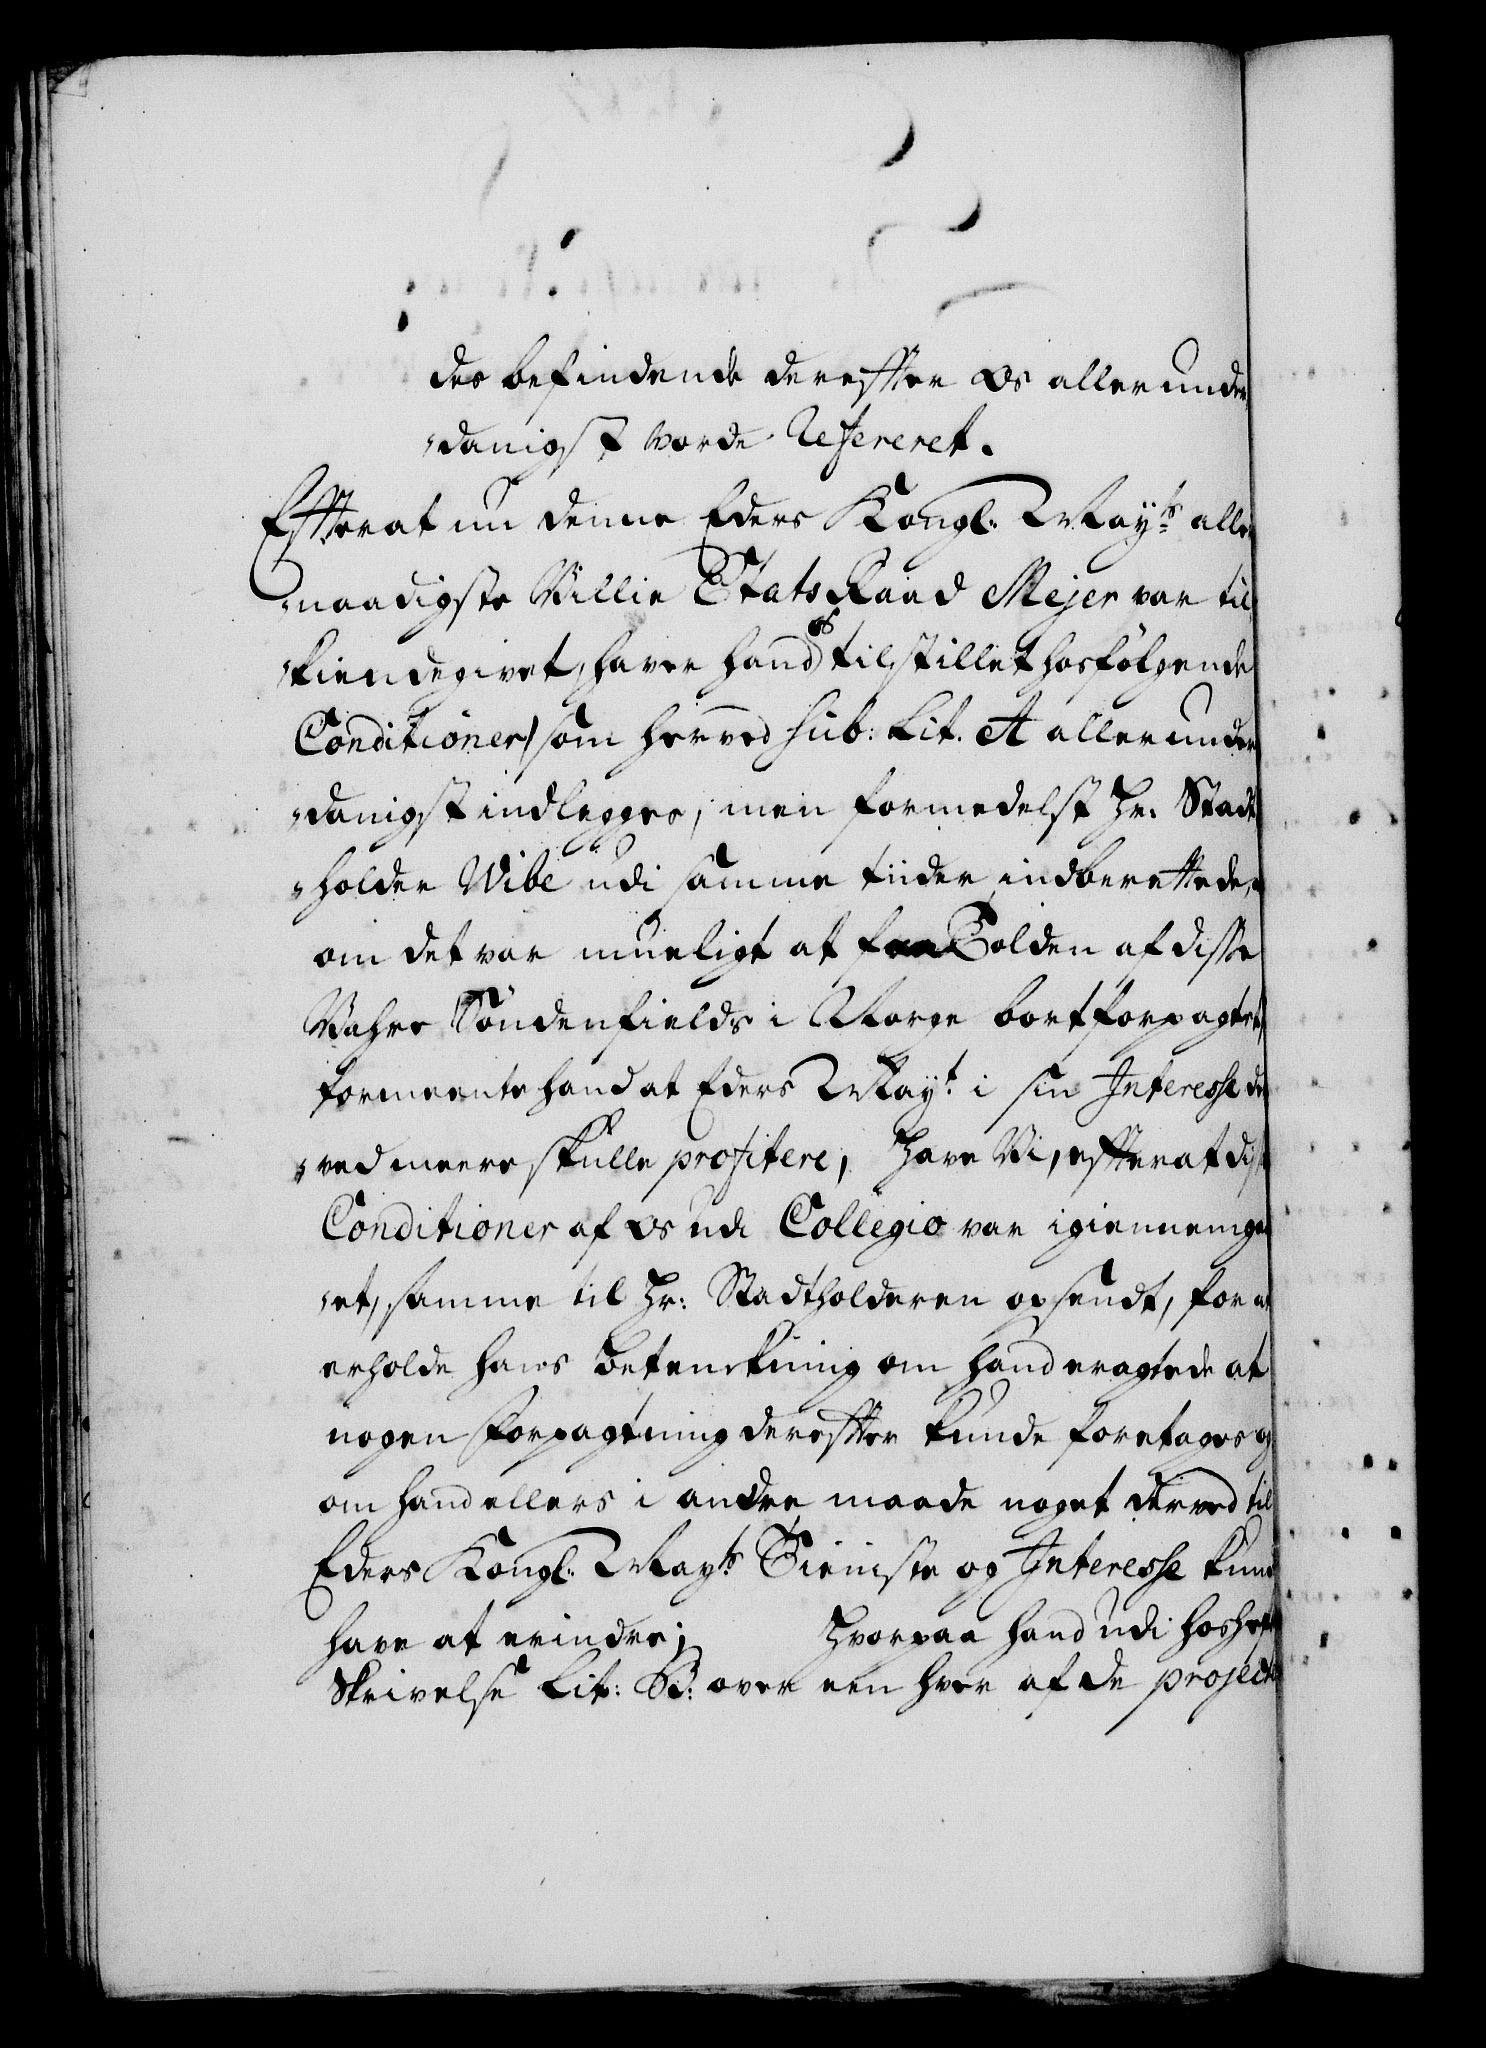 des befindende derefter os allerunder
danigst vorde Refereret.
Efterat nu denne Eders Kongl: Mayts aller
naadigste Villie Etats Raad Mejer var til
kiendegivet, haver hand os tilstillet hosfølgende
Conditioner, som herved sub: Lit. A allerunder
danigst indlegges, men formedelst Hr. Stadt
holder Wibe udi samme tiider indberettede,
om det var mueligt at faae Tolden af disse
Vahre Søndenfields i Norge bortforpagtet,
formeente hand at Eders Mayt. i sin Interesse der
ved meere skulle profitere, Have Vi, efterat disse
Conditioner af os udi Collegio var igiennemgaa
et, samme til Hr: Stadtholderen opsendt, for at
erholde hans betenkning om hand eragtede at
nogen Forpagtning derefter kunde foretages og
om hand ellers i andre maade noget derved til
Eders Kongl: Mayts Tieniste og Interesse kunde
have at erindre; Hvorpaa hand udi hoshefte
Skrivelse Lit: B: over een hver af de project